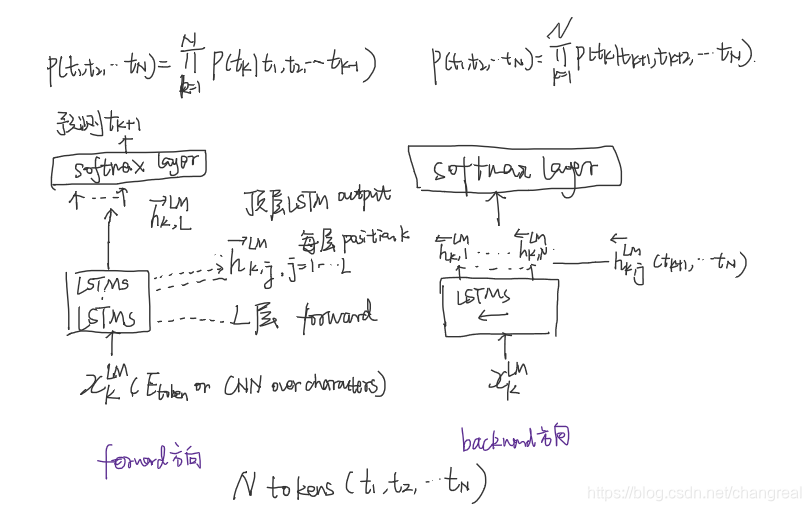 P(t₁,t₂,…t_N) = ∏_{k=1}^{N} P(t_k | t₁,t₂,…t_{k-1})
P(t₁,t₂,…t_N) = ∏_{k=1}^{N} P(t_k | t_{k+1},t_{k+2},…t_N).
预测 t_{k+1}
softmax layer
h→_{k,L}^{LM}
顶层LSTM output
h→_{k,j}^{LM}, j=1…L
每层 position k
LSTMs
LSTMs
L层 forward
x_k^{LM} (E_token or CNN over characters)
forward方向
softmax layer
h←_{k,1}^{LM} …… h←_{k,N}^{LM}
h←_{k,j}^{LM} (t_{k+1},…t_N)
LSTMs
←
x_k^{LM}
backward方向
N tokens (t₁,t₂,…t_N)
https://blog.csdn.net/changreal